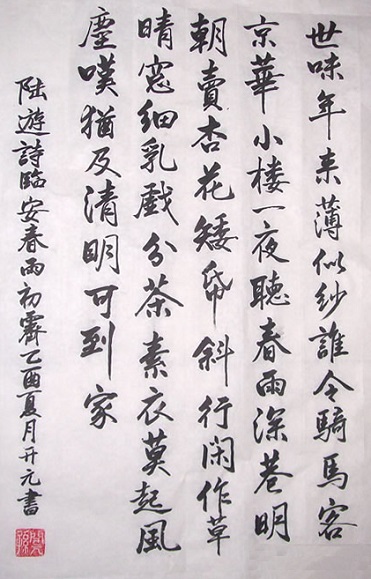 世味年来薄似紗誰令騎馬客
京華小楼一夜聽春雨深巷明
朝賣杏花矮帋斜行閑作草
晴窓细乳戲分茶素衣莫起風
塵嘆猶及清明可到家
陸遊詩臨安春雨初霽乙酉夏月元書